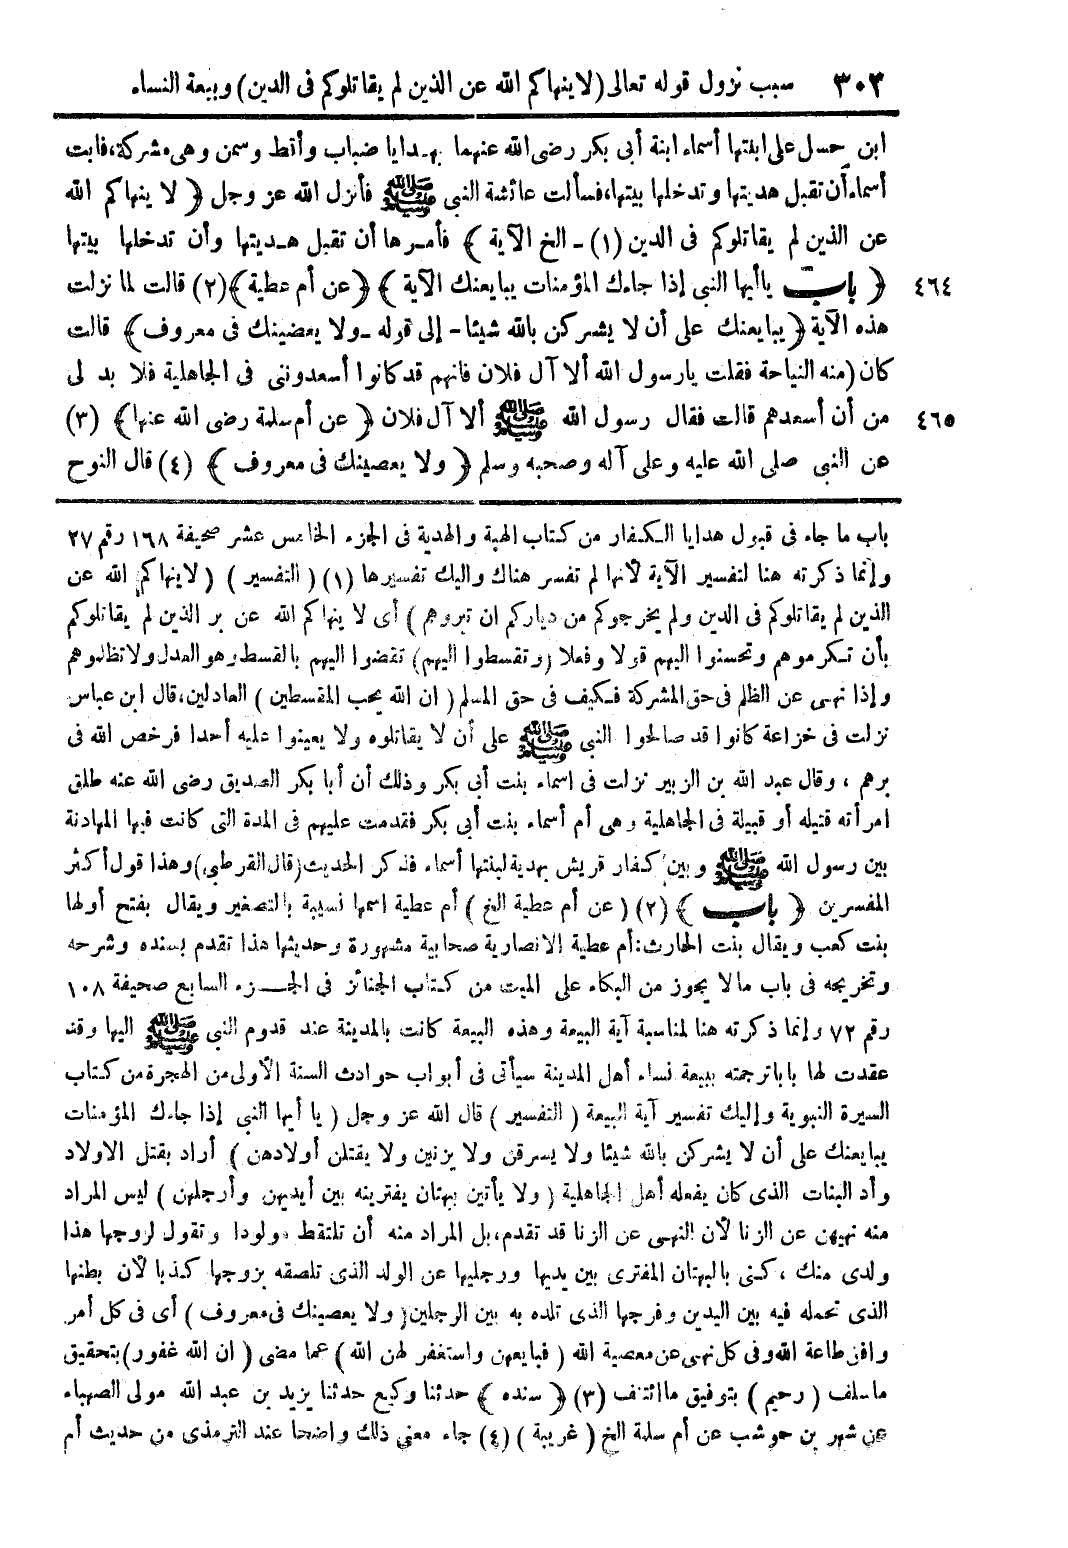 ٣٠٣ سبب نزول قوله تعالى (لاينهاكم الله عن الذين لم يقاتلوكم فى الدين) وبيعة النساء
ابن حسل على ابنتها أسماء ابنة أبى بكر رضى الله عنهما بهدايا ضباب وأقط وسمن وهى مشركة، فابت
أسماء أن تقبل هديتها وتدخلها بيتها، فسألت عائشة النبى ﷺ فأنزل الله عز وجل ﴿ لا ينهاكم الله
عن الذين لم يقاتلوكم فى الدين (١) ــ الخ الآية ﴾ فأمرها أن تقبل هديتها وأن تدخلها بيتها
٤٦٤ ﴿ باب ﴾ ياأيها النبى إذا جاءك المؤمنات يبايعنك الآية ﴾ ﴿عن أم عطية﴾ (٢) قالت لما نزلت
هذه الآية ﴿ يبايعنك على أن لا يشركن بالله شيئا - إلى قوله - ولا يعصينك فى معروف﴾ قالت
كان (منه النياحة فقلت يارسول الله ألا آل فلان فانهم قد كانوا أسعدونى فى الجاهلية فلا بد لى
٤٦٥ من أن أسعدهم قالت فقال رسول الله ﷺ ألا آل فلان ﴿ عن أم سلمة رضى الله عنها﴾ (٣)
عن النبى صلى الله عليه وعلى آله وصحبه وسلم ﴿ ولا يعصينك فى معروف ﴾ (٤) قال النوح
باب ما جاء فى قبول هدايا الكفار من كتاب الهبة والهدية فى الجزء الخامس عشر صحيفة ١٦٨ رقم ٢٧
وإنما ذكرته هنا لتفسير الآية لأنها لم تفسر هناك واليك تفسيرها (١) ( التفسير ) ( لاينهاكم الله عن
الذين لم يقاتلوكم فى الدين ولم يخرجوكم من دياركم ان تبروهم ) أى لا ينهاكم الله عن بر الذين لم يقاتلوكم
بأن تكرموهم وتحسنوا اليهم قولا وفعلا (وتقسطوا اليهم) تقضوا اليهم بالقسط وهو العدل ولا تظلموهم
وإذا نهى عن الظلم فى حق المشركة فكيف فى حق المسلم ( ان الله يحب المقسطين ) العادلين، قال ابن عباس
نزلت فى خزاعة كانوا قد صالحوا النبى ﷺ على أن لا يقاتلوه ولا يعينوا عليه أحدا فرخص الله فى
برهم ، وقال عبد الله بن الزبير نزلت فى اسماء بنت أبى بكر وذلك أن أبا بكر الصديق رضى الله عنه طلق
امرأته قتيله أو قبيلة فى الجاهلية وهى أم أسماء بنت أبى بكر فقدمت عليهم فى المدة التى كانت فيها المهادنة
بين رسول الله ﷺ وبين كفار قريش بهدية لبنتها أسماء فذكر الحديث (قال القرطبى) وهذا قول أكثر
المفسرين ﴿ باب ﴾ (٢) ( عن أم عطية الخ ) أم عطية اسمها نسيبة بالتصغير ويقال بفتح أولها
بنت كعب ويقال بنت الحارث: أم عطية الانصارية صحابية مشهورة وحديثها هذا تقدم بسنده وشرحه
وتخريجه فى باب مالا يجوز من البكاء على الميت من كتاب الجنائز فى الجزء السابع صحيفة ١٠٨
رقم ٧٢ وإنما ذكرته هنا لمناسبة آية البيعة وهذه البيعة كانت بالمدينة عند قدوم النبى ﷺ اليها وقد
عقدت لها بابا ترجمته ببيعة نساء أهل المدينة سيأتى فى أبواب حوادث السنة الأولى من الهجرة من كتاب
السيرة النبوية وإليك تفسير آية البيعة ( التفسير ) قال الله عز وجل ( يا أيها النبى إذا جاءك المؤمنات
يبايعنك على أن لا يشركن بالله شيئا ولا يسرقن ولا يزنين ولا يقتلن أولادهن ) أراد بقتل الاولاد
وأد البنات الذى كان يفعله أهل الجاهلية ( ولا يأتين ببهتان يفترينه بين أيديهن وأرجلهن ) ليس المراد
منه نهيهن عن الزنا لأن النهى عن الزنا قد تقدم، بل المراد منه أن تلتقط مولودا وتقول لزوجها هذا
ولدى منك ، كنى بالبهتان المفترى بين يديها ورجليها عن الولد الذى تلصقه بزوجها كذبا لأن بطنها
الذى تحمله فيه بين اليدين وفرجها الذى تلده به بين الرجلين ( ولا يعصينك فى معروف ) أى فى كل أمر
وافق طاعة الله وفى كل نهى عن معصية الله ( فبايعهن واستغفر لهن الله ) عما مضى ( ان الله غفور) بتحقيق
ماسلف ( رحيم ) بتوفيق ماائتنف (٣) ﴿ سنده ﴾ حدثنا وكيع حدثنا يزيد بن عبد الله مولى الصهباء
عن شهر بن حوشب عن أم سلمة الخ ( غريبة ) (٤) جاء معنى ذلك واضحا عند الترمذى من حديث أم